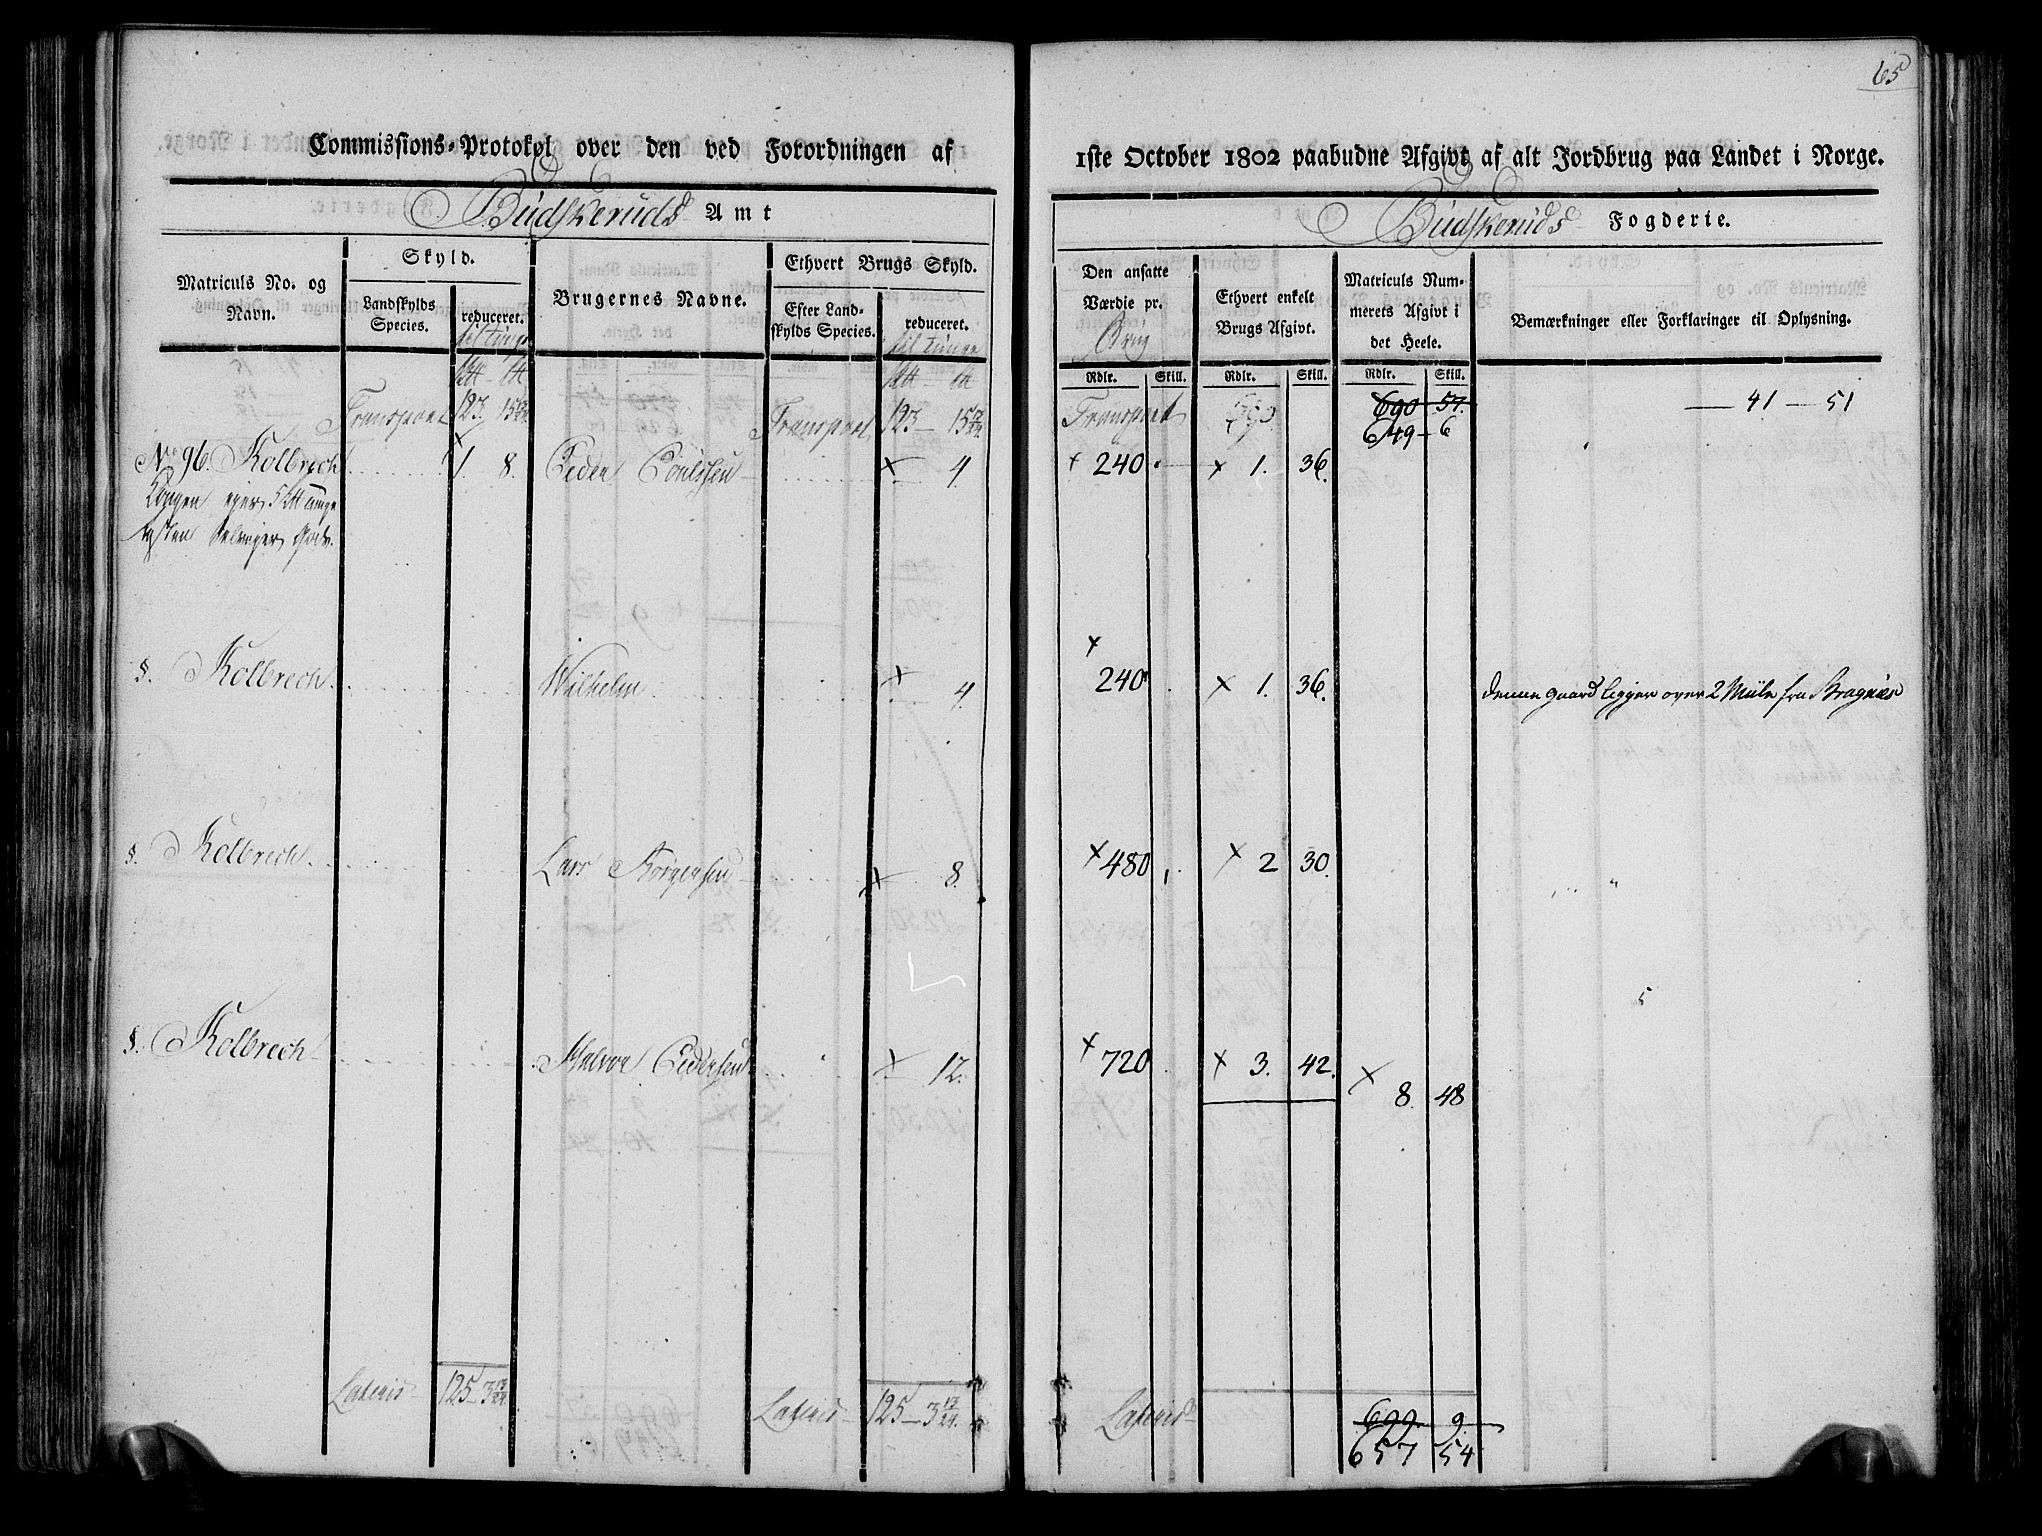 65
Commissions-Protokol over den ved Forordningen af
1ste October 1802 paabudne Afgivt af alt Jordbrug paa Landet i Norge.
Budskeruds Amt
Budskeruds Fogderie.
Matriculs No. og Navn.
Skyld.
Landskylds Species.
reduceret. til tunge
Brugernes Navne.
Ethvert Brugs Skyld.
Efter Landskylds Species.
reduceret. til tunge
Den ansatte Værdie pr. Brug
Ethvert enkelt Brugs Afgivt.
Matriculs Nummerets Afgivt i det Heele.
Bemærkninger eller Forklaringer til Oplysning.
Rdlr. Skill. Rdlr. Skill. Rdlr. Skill.
Transport 123. 15 Transport 123 15 Transport 690 57. 41 — 51
649 - 6
No 96. Kolbrech 1. 8. Peder Poulssen 4. 240 1. 36.
Kongen ejer
Selvejer Gods.
§. Kolbrech Wilhelm 4. 240 1. 36. denne gaard ligger over 2 Miile fra Bragnæs
§. Kolbrech Lars Jørgensen 8. 480 2 30. "
§. Kolbrech Halvor Pedersen 12. 720 3. 42. 8. 48
Lateris 125 3 13/24 Lateris 125 3 13/24 Lateris 699 9
657 54